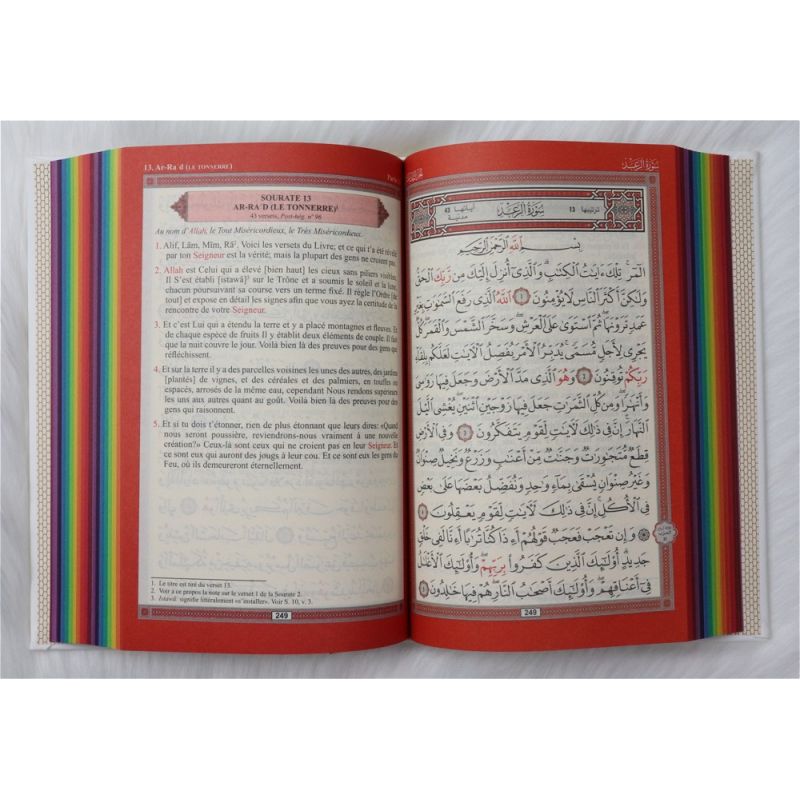 13. Ar-Ra'd (LE TONNERRE)
SOURATE 13
AR-RA'D (LE TONNERRE)¹
43 versets, Post-hég. n° 96
Au nom d'Allah, le Tout Miséricordieux, le Très Miséricordieux.
1. Alif, Lâm, Mîm, Râ². Voici les versets du Livre; et ce qui t'a été révélé
par ton Seigneur est la vérité; mais la plupart des gens ne croient pas.
2. Allah est Celui qui a élevé [bien haut] les cieux sans piliers visibles.
Il S'est établi [istawâ]³ sur le Trône et a soumis le soleil et la lune,
chacun poursuivant sa course vers un terme fixé. Il règle l'Ordre [de
tout] et expose en détail les signes afin que vous ayez la certitude de la
rencontre de votre Seigneur.
3. Et c'est Lui qui a étendu la terre et y a placé montagnes et fleuves. Et
de chaque espèce de fruits Il y établit deux éléments de couple. Il fait
que la nuit couvre le jour. Voilà bien là des preuves pour des gens qui
réfléchissent.
4. Et sur la terre il y a des parcelles voisines les unes des autres, des jardins
[plantés] de vignes, et des céréales et des palmiers, en touffes ou
espacés, arrosés de la même eau, cependant Nous rendons supérieurs
les uns aux autres quant au goût. Voilà bien là des preuves pour des
gens qui raisonnent.
5. Et si tu dois t'étonner, rien de plus étonnant que leurs dires: «Quand
nous serons poussière, reviendrons-nous vraiment à une nouvelle
création?» Ceux-là sont ceux qui ne croient pas en leur Seigneur. Et
ce sont eux qui auront des jougs à leur cou. Et ce sont eux les gens du
Feu, où ils demeureront éternellement.
1. Le titre est tiré du verset 13.
2. Voir a ce propos la note sur le verset 1 de la Sourate 2.
3. Istawâ: signifie littéralement «s'installer». Voir S. 10, v. 3.
249
سُورَةُ الرَّعْدِ
ترتيبها 13 سُورَةُ الرَّعْدِ آياتها 43 مدنية
بِسْمِ اللَّهِ الرَّحْمَٰنِ الرَّحِيمِ
الٓمٓر ۚ تِلْكَ ءَايَٰتُ الْكِتَٰبِ ۗ وَالَّذِىٓ أُنزِلَ إِلَيْكَ مِن رَّبِّكَ الْحَقُّ
وَلَٰكِنَّ أَكْثَرَ النَّاسِ لَا يُؤْمِنُونَ ١ اللَّهُ الَّذِى رَفَعَ السَّمَٰوَٰتِ بِغَيْرِ
عَمَدٍ تَرَوْنَهَا ۖ ثُمَّ اسْتَوَىٰ عَلَى الْعَرْشِ ۖ وَسَخَّرَ الشَّمْسَ وَالْقَمَرَ ۖ كُلٌّ
يَجْرِى لِأَجَلٍ مُّسَمًّى ۚ يُدَبِّرُ الْأَمْرَ يُفَصِّلُ الْءَايَٰتِ لَعَلَّكُم بِلِقَآءِ
رَبِّكُمْ تُوقِنُونَ ٢ وَهُوَ الَّذِى مَدَّ الْأَرْضَ وَجَعَلَ فِيهَا رَوَٰسِىَ
وَأَنْهَٰرًا ۖ وَمِن كُلِّ الثَّمَرَٰتِ جَعَلَ فِيهَا زَوْجَيْنِ اثْنَيْنِ ۖ يُغْشِى الَّيْلَ
النَّهَارَ ۚ إِنَّ فِى ذَٰلِكَ لَءَايَٰتٍ لِّقَوْمٍ يَتَفَكَّرُونَ ٣ وَفِى الْأَرْضِ
قِطَعٌ مُّتَجَٰوِرَٰتٌ وَجَنَّٰتٌ مِّنْ أَعْنَٰبٍ وَزَرْعٌ وَنَخِيلٌ صِنْوَانٌ
وَغَيْرُ صِنْوَانٍ يُسْقَىٰ بِمَآءٍ وَٰحِدٍ وَنُفَضِّلُ بَعْضَهَا عَلَىٰ بَعْضٍ
فِى الْأُكُلِ ۚ إِنَّ فِى ذَٰلِكَ لَءَايَٰتٍ لِّقَوْمٍ يَعْقِلُونَ ٤
۞ وَإِن تَعْجَبْ فَعَجَبٌ قَوْلُهُمْ أَءِذَا كُنَّا تُرَٰبًا أَءِنَّا لَفِى خَلْقٍ
جَدِيدٍ ۗ أُو۟لَٰٓئِكَ الَّذِينَ كَفَرُوا۟ بِرَبِّهِمْ ۖ وَأُو۟لَٰٓئِكَ الْأَغْلَٰلُ
فِىٓ أَعْنَاقِهِمْ ۖ وَأُو۟لَٰٓئِكَ أَصْحَٰبُ النَّارِ ۖ هُمْ فِيهَا خَٰلِدُونَ ٥
249